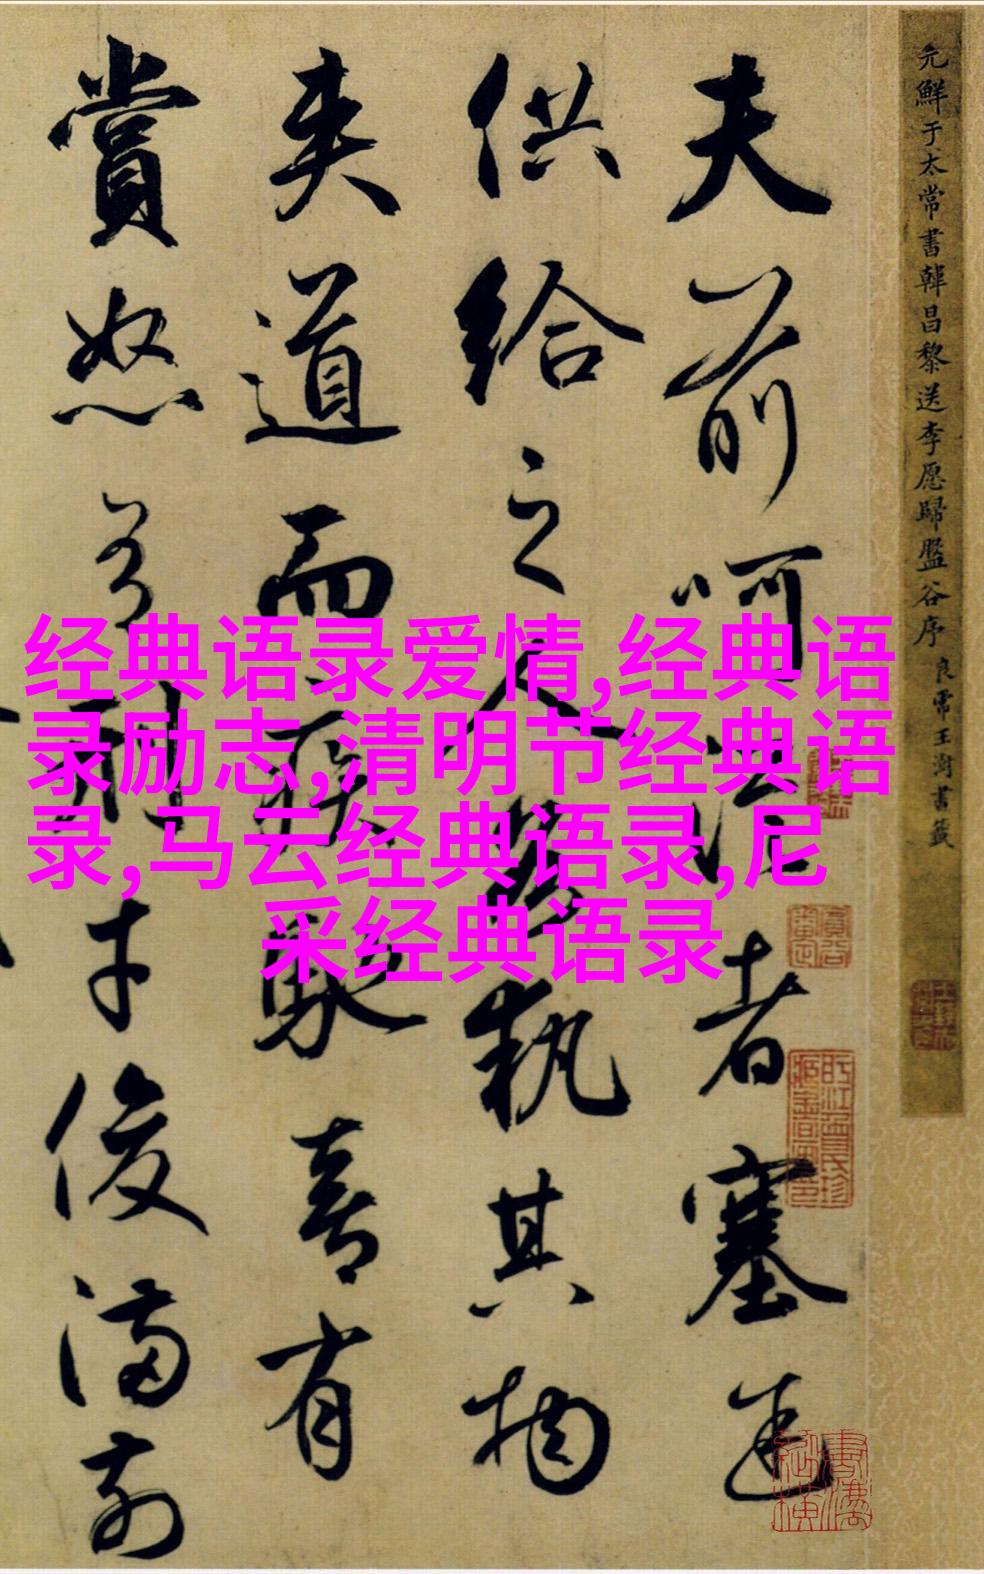 元鮮于太常書韓昌黎送李愿歸盤谷序 良常王澍書籤
夫前呵從者塞途
供給之人各執其物
夾道而疾馳喜有
賞怒有刑才俊滿前
经典语录爱情,经典语
录励志,清明节经典语
录,马云经典语录,尼
采经典语录